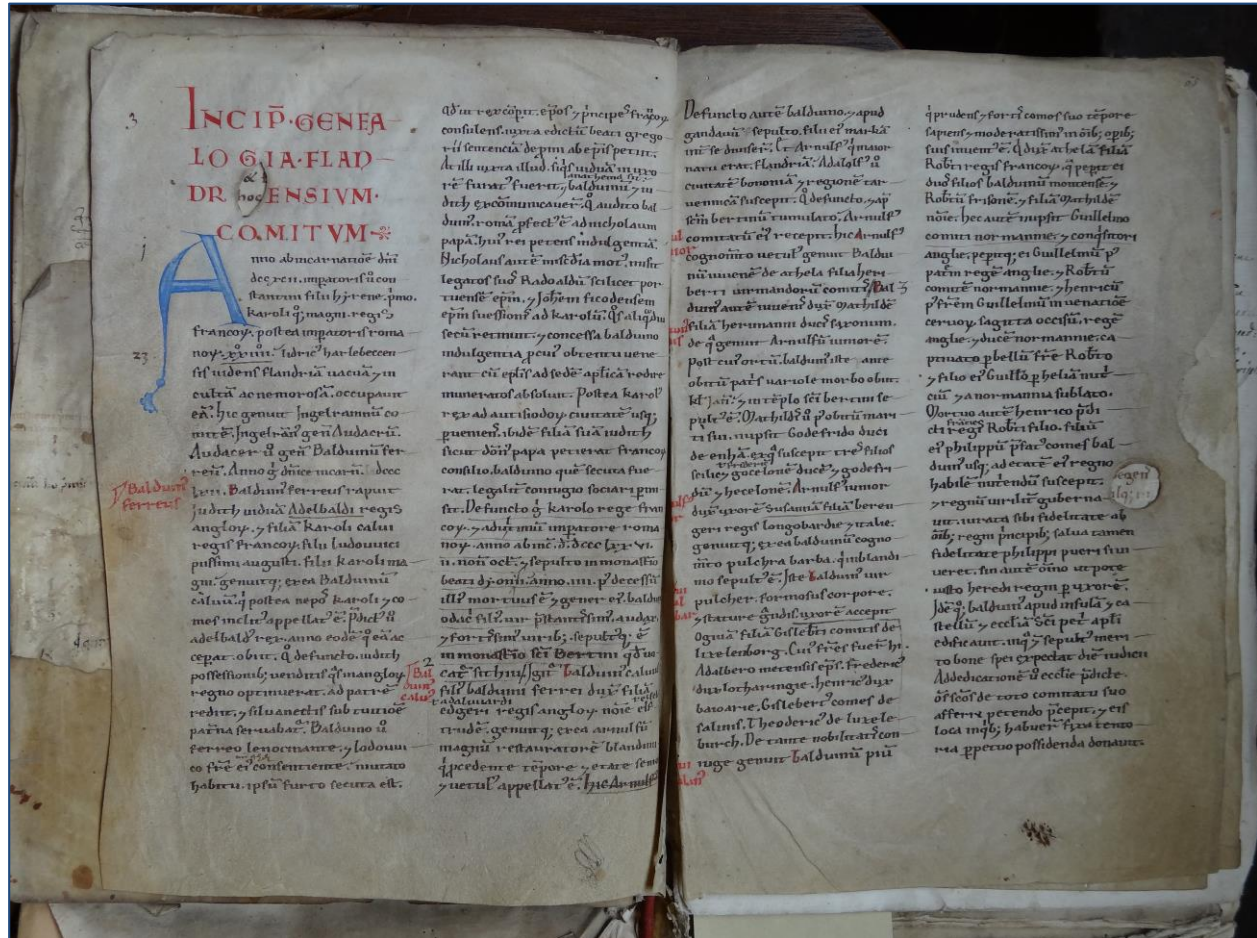 INCIP̄·GENEA
LOGIA·FLAN
DRENSIVM·
COMITVM
Anno ab incarnatiōe dn̄i
dcc.xcii. imꝑatoris ū con
stantini filii hyrene. pͥmo.
karoli qꝫ magni. regis
francoꝝ. postea imꝑatoris roma
noꝝ. xxiiii. lidricꝰ harlebeccen
sis videns flandriā vacuā ⁊ in
cultā ac nemorosā. occupauit
eā. hic genuit Ingelrannū co
mitē. Ingelrān gen̄ Audacrū.
Audacer ū gen̄ Balduinū fer
reū. Anno ḡ dn̄ice incarn̄. dccc
Balduinꝰ ferreus rapuit
Judith viduā Adelbaldi regis
angloꝝ. ⁊ filiā karoli calui
regis francoꝝ. filii ludouuici
piissimi augusti. filii karoli ma
gni. genuitqꝫ ex ea Balduinū
caluū. qͥ postea nepōs karoli ⁊ co
mes inclitꝰ appellatꝰ ē. p̄dictꝰ ū
adelbaldꝰ rex. anno eodē qͦ eā ac
ceperat. obiit. Qͦ defuncto. iudith
possessionibꝫ venditis qͣs in angloꝝ
regno optinuerat. ad patrē
rediit. ⁊ siluanectis sub tuitiōe
pat̄na seruabatꝰ. Balduino ū
ferreo lenocinante. ⁊ lodouui
co frē eiꝰ consentiente. mutato
habitu. ipsū furto secuta est.
Balduinꝰ
ferreus
Qd̄ ut rex cōꝑit. ep̄os ⁊ pͥncipes frācoꝝ
consulens. iuxta edictū beati grego
rii sentenciā depmi ab ep̄is petiit.
At illi iuxta illud. siqͥs viduā in uxo
anathema sit.
rē furatꝰ fuerit. balduinū ⁊ iu
dith excōmunicauer̄. Qͦ audito bal
duinꝰ romā ꝓfectꝰ ē ad nicholaum
papā. huiꝰ rei petens indulgentiā.
Nicholaus autē mis̄dia motꝰ. misit
legatos suos Radoaldū scilicet por
tuensē ep̄m. ⁊ Joh̄em ficodensem
ep̄m suessionis ad karolū. Qͥ aliqͣdiu
secū retinuit. ⁊ concessa balduino
indulgentia ꝓ cuiꝰ obtentu uene
rant cū ep̄lis ad sedē aplīcā redire
muneratos absoluit. Postea karolꝰ
rex ad autisiodoꝝ ciuitatē usqꝫ
ꝑuemens. ibidē filiā suā iudith
sicut dōn̄ papa petierat francoꝝ
consilio. balduino quē secuta fue
rat. legali coniugio sociari ꝑmi
sit. Defuncto ḡ karolo rege fran
coꝝ. imꝑatore roma
noꝝ. anno ab inc̄. d. dccc lxx vi.
ii. non̄ oct̄. ⁊ sepulto in monast̄io
beati dyonisii. anno. iiii. p̄ decessū
illiꝰ mortuus ē ⁊ gener eiꝰ. balduinꝰ
odac̄ filiꝰ. uir p̄stantissimꝰ. audax
⁊ fortissimꝰ uiribꝫ. sepultꝰqꝫ ē
in monast̄io sc̄i Bertini qd̄ uo
Balduinꝰ caluus
filiꝰ balduini ferrei dux filiā
edgeri regis angloꝝ nōie elf
trudē. genuitqꝫ ex ea arnulfū
magnū restauratorē blandinii
qͥ p̄cedente tēpore ⁊ etate senior
⁊ uetulꝰ appellatꝰ ē. hic Arnulfꝰ
Balduinꝰ
caluꝰ
Defuncto autē balduino. ⁊ apud
gandauū sepulto. filii eiꝰ markā
int̄ se diuiser̄. Et Arnulfꝰ qͥ maior
natu erat. flandriā. Adalolfꝰ ū
ciuitatē bononiā ⁊ regionē tar
uennicā suscepit. Qͦ defuncto. ⁊ apͩ
sc̄m bertinū tumulato. Arnulfꝰ
comitatū eiꝰ recepit. hic Arnulfꝰ
cognom̄to uetulꝰ genuit Baldui
nū iuuenē de athela filia heri
berti uirmandorū comitis. Bal
duinꝰ autē iuuenis dux̄ Mathildē
filiā herimanni ducis saxonum.
de qͣ genuit Arnulfū iuniorē.
Post cuiꝰ ortū. balduinꝰ iste ante
obitū patris uariole morbo obiit.
kl̄. Jan̄. ⁊ in tēplo sc̄i bertini se
pultꝰ ē. Mathildis ū p̄ obitū mari
ti sui. nupsit Godefrido duci
de enhā. ex qͦ suscepit tres filios
scilic̄ gocelonē ducē. ⁊ godefri
dū ⁊ hecelonē. Arnulfꝰ iunior
dux̄ uxorē Susannā filiā beren
geri regis longobardie ⁊ italie.
genuitqꝫ ex ea balduinū cogno
m̄to pulchra barba. qͥ in blandi
nio sepultꝰ ē. Iste balduinꝰ uir
pulcher. formosus corpore.
⁊ stature gͣndis. uxorē accepit
Ogiuā filiā Gisleb̄ti comitis de
luxelenborg. Cuiꝰ frēs fuer̄ hi.
Adalbero metensis ep̄s. Fredericꝰ
dux lotharingie. henricꝰ dux
baioarie. Gislebertꝰ comes de
salmis. Theodericꝰ de luxele
burch. De tante nobilitatis con
iuge genuit balduinū piū
qͥ prudens ⁊ fortis comes suo tēpore
sapiens ⁊ moderatissimꝰ in ōibꝫ opibꝫ
suis inuentꝰ ē. Qͥ dux̄ athelā filiā
Rob̄ti regis francoꝝ. qͣ peꝑit ei
duos filios balduinū montensē ⁊
Rob̄tū frisonē. ⁊ filiā Mathildē
nōie. hec autē nupsit Guillelmo
comiti normannie. ⁊ conqͥsitori
anglie. peꝑitqꝫ ei Guillelmū p̄
patrē regē anglie. ⁊ Rob̄tū
comitē normannie. ⁊ henricū
p̄ frēm Guillelmū in uenatiōe
ceruoꝝ sagitta occisū. regē
anglie. ⁊ ducē normannie. ca
ptiuato ꝑ bellū fr̄e Rob̄to
⁊ filio eiꝰ Guill̄o ꝑ heliā nut̄
ciū ⁊ a normannia sublato.
Mortuo autē henrico p̄di
cti regis Rob̄ti filio. filiū
eiꝰ philippū p̄fatꝰ comes bal
duinꝰ usqꝫ ad etatē eiꝰ regno
habilē nutriendū suscepit.
⁊ regnū uirilit̄ guberna
uit. iurata sibi fidelitate ab
ōibꝫ regni pͥncipibꝫ salua tamen
fidelitate philippi pueri si ui
ueret. sin autē ōino utpote
iusto heredi regni ꝑ uxorē.
Idē qꝫ balduinꝰ apud insulā ⁊ ca
stellū ⁊ ecclīā sc̄i pet̄ apl̄i
edificauit. in qͣ ⁊ sepultꝰ meri
to bone spei expectat diē iudicii
Ad dedicationē ū ecclīe p̄dicte
ōs sc̄os de toto comitatu suo
afferri petendo p̄cepit. ⁊ eis
loca in qꝫ habuer̄ fixa tento
ria ꝑpetuo possidenda donauit.